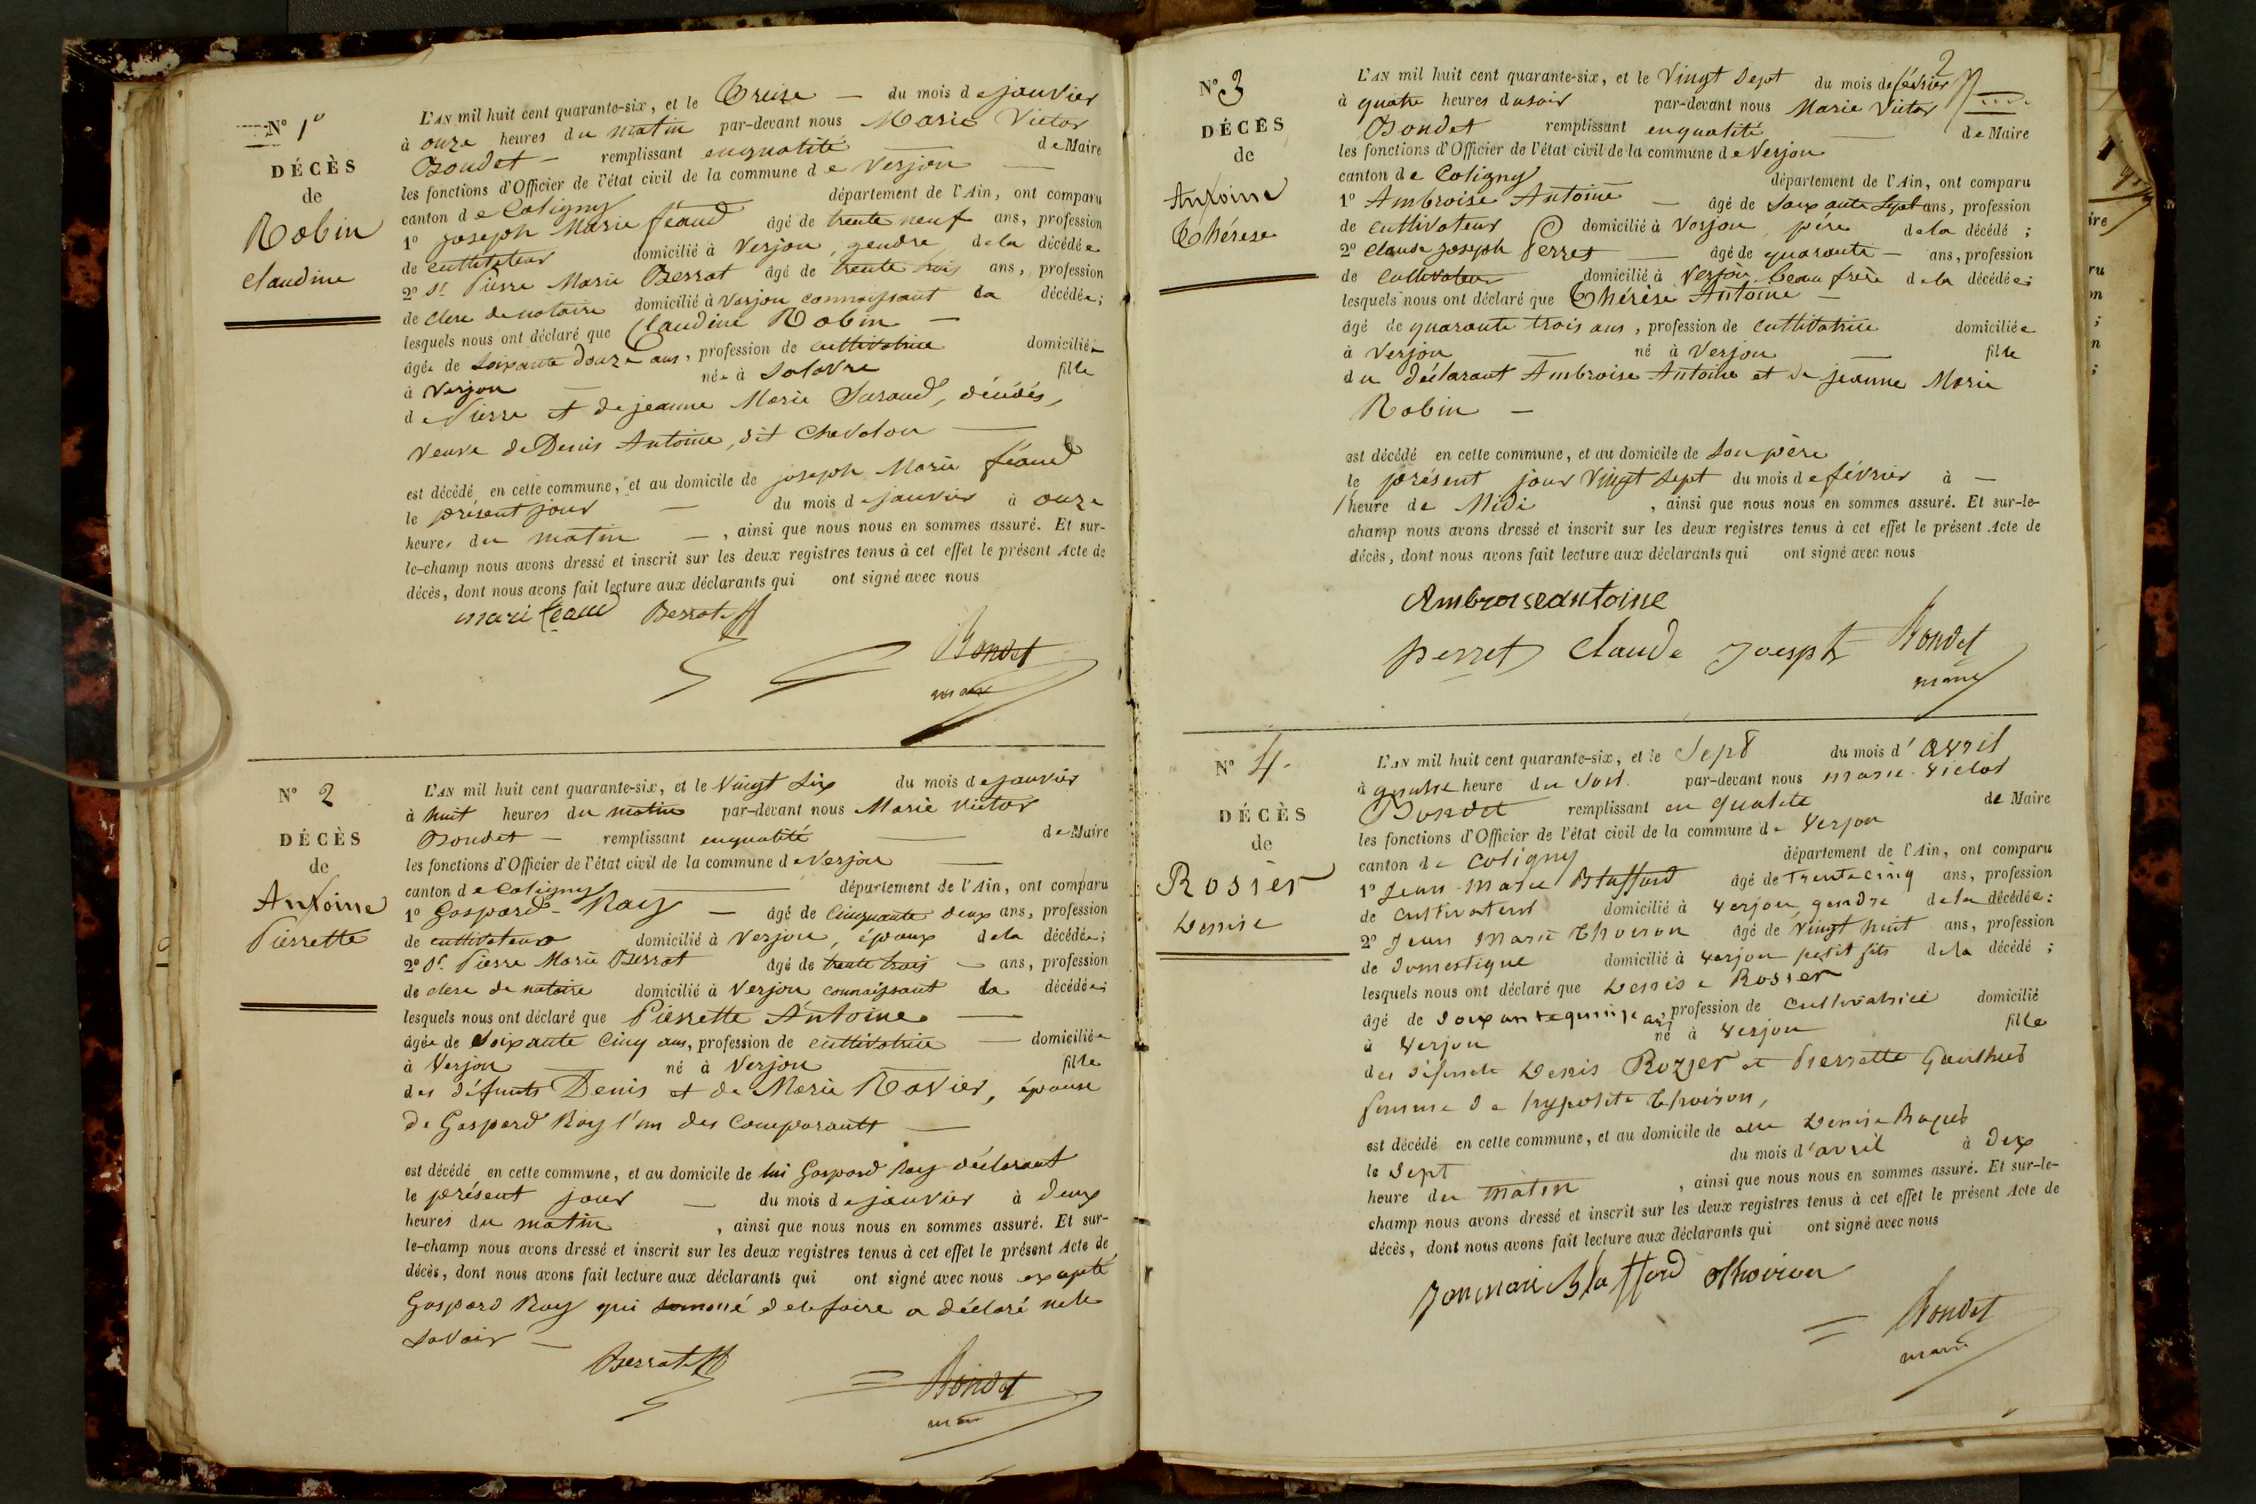 N° 1er
DÉCÈS
de
Robin
Claudine
L'AN mil huit cent quarante-six, et le Treize — du mois de janvier
à onze heures du matin par-devant nous Marie Victor
Bondet — remplissant enqualité — de Maire
les fonctions d'Officier de l'état civil de la commune de Verjon —
canton de Coligny département de l'Ain, ont comparu
1° Joseph Marie féaud âgé de trente neuf ans, profession
de cultivateur domicilié à Verjon, gendre de la décédée
2° Sr Pierre Marie Berrat âgé de trente trois ans, profession
de clerc de notaire domicilié à Verjon connaissant la décédée;
lesquels nous ont déclaré que Claudine Robin —
âgée de soixante douze ans, profession de cultivatrice domiciliée
à Verjon — née à Salavre fille
de Pierre et de jeanne Marie Saraud, décédés,
veuve de Denis Antoine, dit Chevalon —
est décédé en cette commune, et au domicile de joseph Marie féaud
le présent jour — du mois de janvier à onze
heures du matin —, ainsi que nous nous en sommes assuré. Et sur-
le-champ nous avons dressé et inscrit sur les deux registres tenus à cet effet le présent Acte de
décès, dont nous avons fait lecture aux déclarants qui ont signé avec nous
mari feaud Berrat
Bondet
maire
N° 2
DÉCÈS
de
Antoine
Pierrette
L'AN mil huit cent quarante-six, et le Vingt Six du mois de janvier
à huit heures du matin par-devant nous Marie Victor
Bondet — remplissant enqualité — de Maire
les fonctions d'Officier de l'état civil de la commune de Verjon —
canton de Coligny — département de l'Ain, ont comparu
1° Gaspard Ray — âgé de Cinquante deux ans, profession
de cultivateur domicilié à Verjon, époux de la décédée;
2° Sr Pierre Marie Berrat âgé de trente trois — ans, profession
de clerc de notaire domicilié à Verjon connaissant la décédée;
lesquels nous ont déclaré que Pierrette Antoine —
âgée de Soixante Cinq ans, profession de cultivatrice — domiciliée
à Verjon — né à Verjon — fille
des défunts Denis et de Marie Ravier, épouse
de Gaspard Ray l'un des Comparants —
est décédé en cette commune, et au domicile de lui Gaspard Ray déclarant
le présent jour — du mois de janvier à deux
heures du matin, ainsi que nous nous en sommes assuré. Et sur-
le-champ nous avons dressé et inscrit sur les deux registres tenus à cet effet le présent Acte de
décès, dont nous avons fait lecture aux déclarants qui ont signé avec nous excepté
Gaspard Ray qui sommé de le faire a déclaré ne le
savoir —
Berrat
Bondet
maire
2
N° 3
DÉCÈS
de
Antoine
Thérèse
L'AN mil huit cent quarante-six, et le Vingt Sept du mois de février
à quatre heures du soir par-devant nous Marie Victor
Bondet remplissant enqualité — de Maire
les fonctions d'Officier de l'état civil de la commune de Verjon
canton de Coligny département de l'Ain, ont comparu
1° Ambroise Antoine — âgé de Soixante Sept ans, profession
de cultivateur domicilié à Verjon, père de la décédé;
2° Claude Joseph Perret — âgé de quarante — ans, profession
de Cultivateur domicilié à Verjon beau frère de la décédée;
lesquels nous ont déclaré que Thérèse Antoine —
âgé de quarante trois ans, profession de cultivatrice domiciliée
à Verjon — né à Verjon — fille
du déclarant Ambroise Antoine et de jeanne Marie
Robin —
est décédé en cette commune, et au domicile de Son père
le présent jour Vingt Sept du mois de février à —
heure de Midi, ainsi que nous nous en sommes assuré. Et sur-le-
champ nous avons dressé et inscrit sur les deux registres tenus à cet effet le présent Acte de
décès, dont nous avons fait lecture aux déclarants qui ont signé avec nous
Ambroiseantoine
perret Claude Joesph Bondet
maire
N° 4.
DÉCÈS
de
Rosier
Denise
L'AN mil huit cent quarante-six, et le Sept du mois d'avril
à quatre heure du Soir. par-devant nous marie Victor
Bondet remplissant en qualité de Maire
les fonctions d'Officier de l'état civil de la commune de Verjon
canton de Coligny département de l'Ain, ont comparu
1° Jean-Marie Blaffard âgé de Trente cinq ans, profession
de cultivateur domicilié à Verjon gendre de la décédée:
2° Jean Marie Thoison âgé de Vingt huit ans, profession
de domestique domicilié à Verjon petit fils de la décédé;
lesquels nous ont déclaré que Denise Rosier
âgé de Soixante quinze ans profession de cultivatrice domicilié
à Verjon né à Verjon fille
des défunts Denis Rozier et Pierrette Gauthier
femme de hypolite Thoison,
est décédé en cette commune, et au domicile de elle Denise
le Sept du mois d'avril à dix
heure du matin, ainsi que nous nous en sommes assuré. Et sur-le-
champ nous avons dressé et inscrit sur les deux registres tenus à cet effet le présent Acte de
décès, dont nous avons fait lecture aux déclarants qui ont signé avec nous
Janmari Blaffard thoison
Bondet
maire